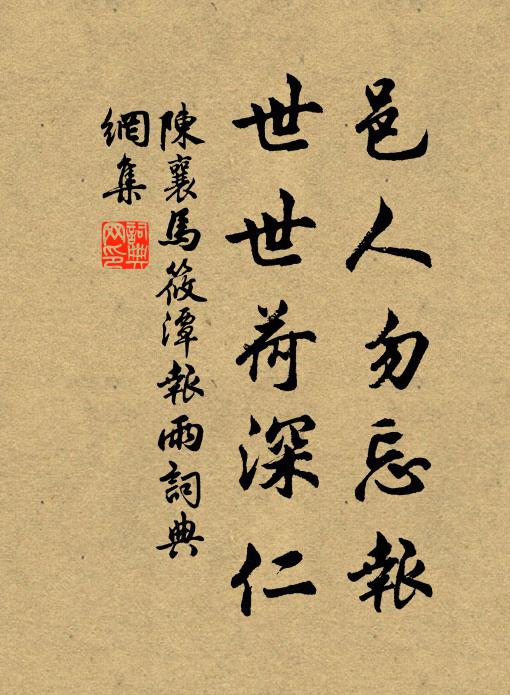 邑人勿忘報
世世荷深仁
陳襄馬筱潭報雨詞典
網集
詞典
网印